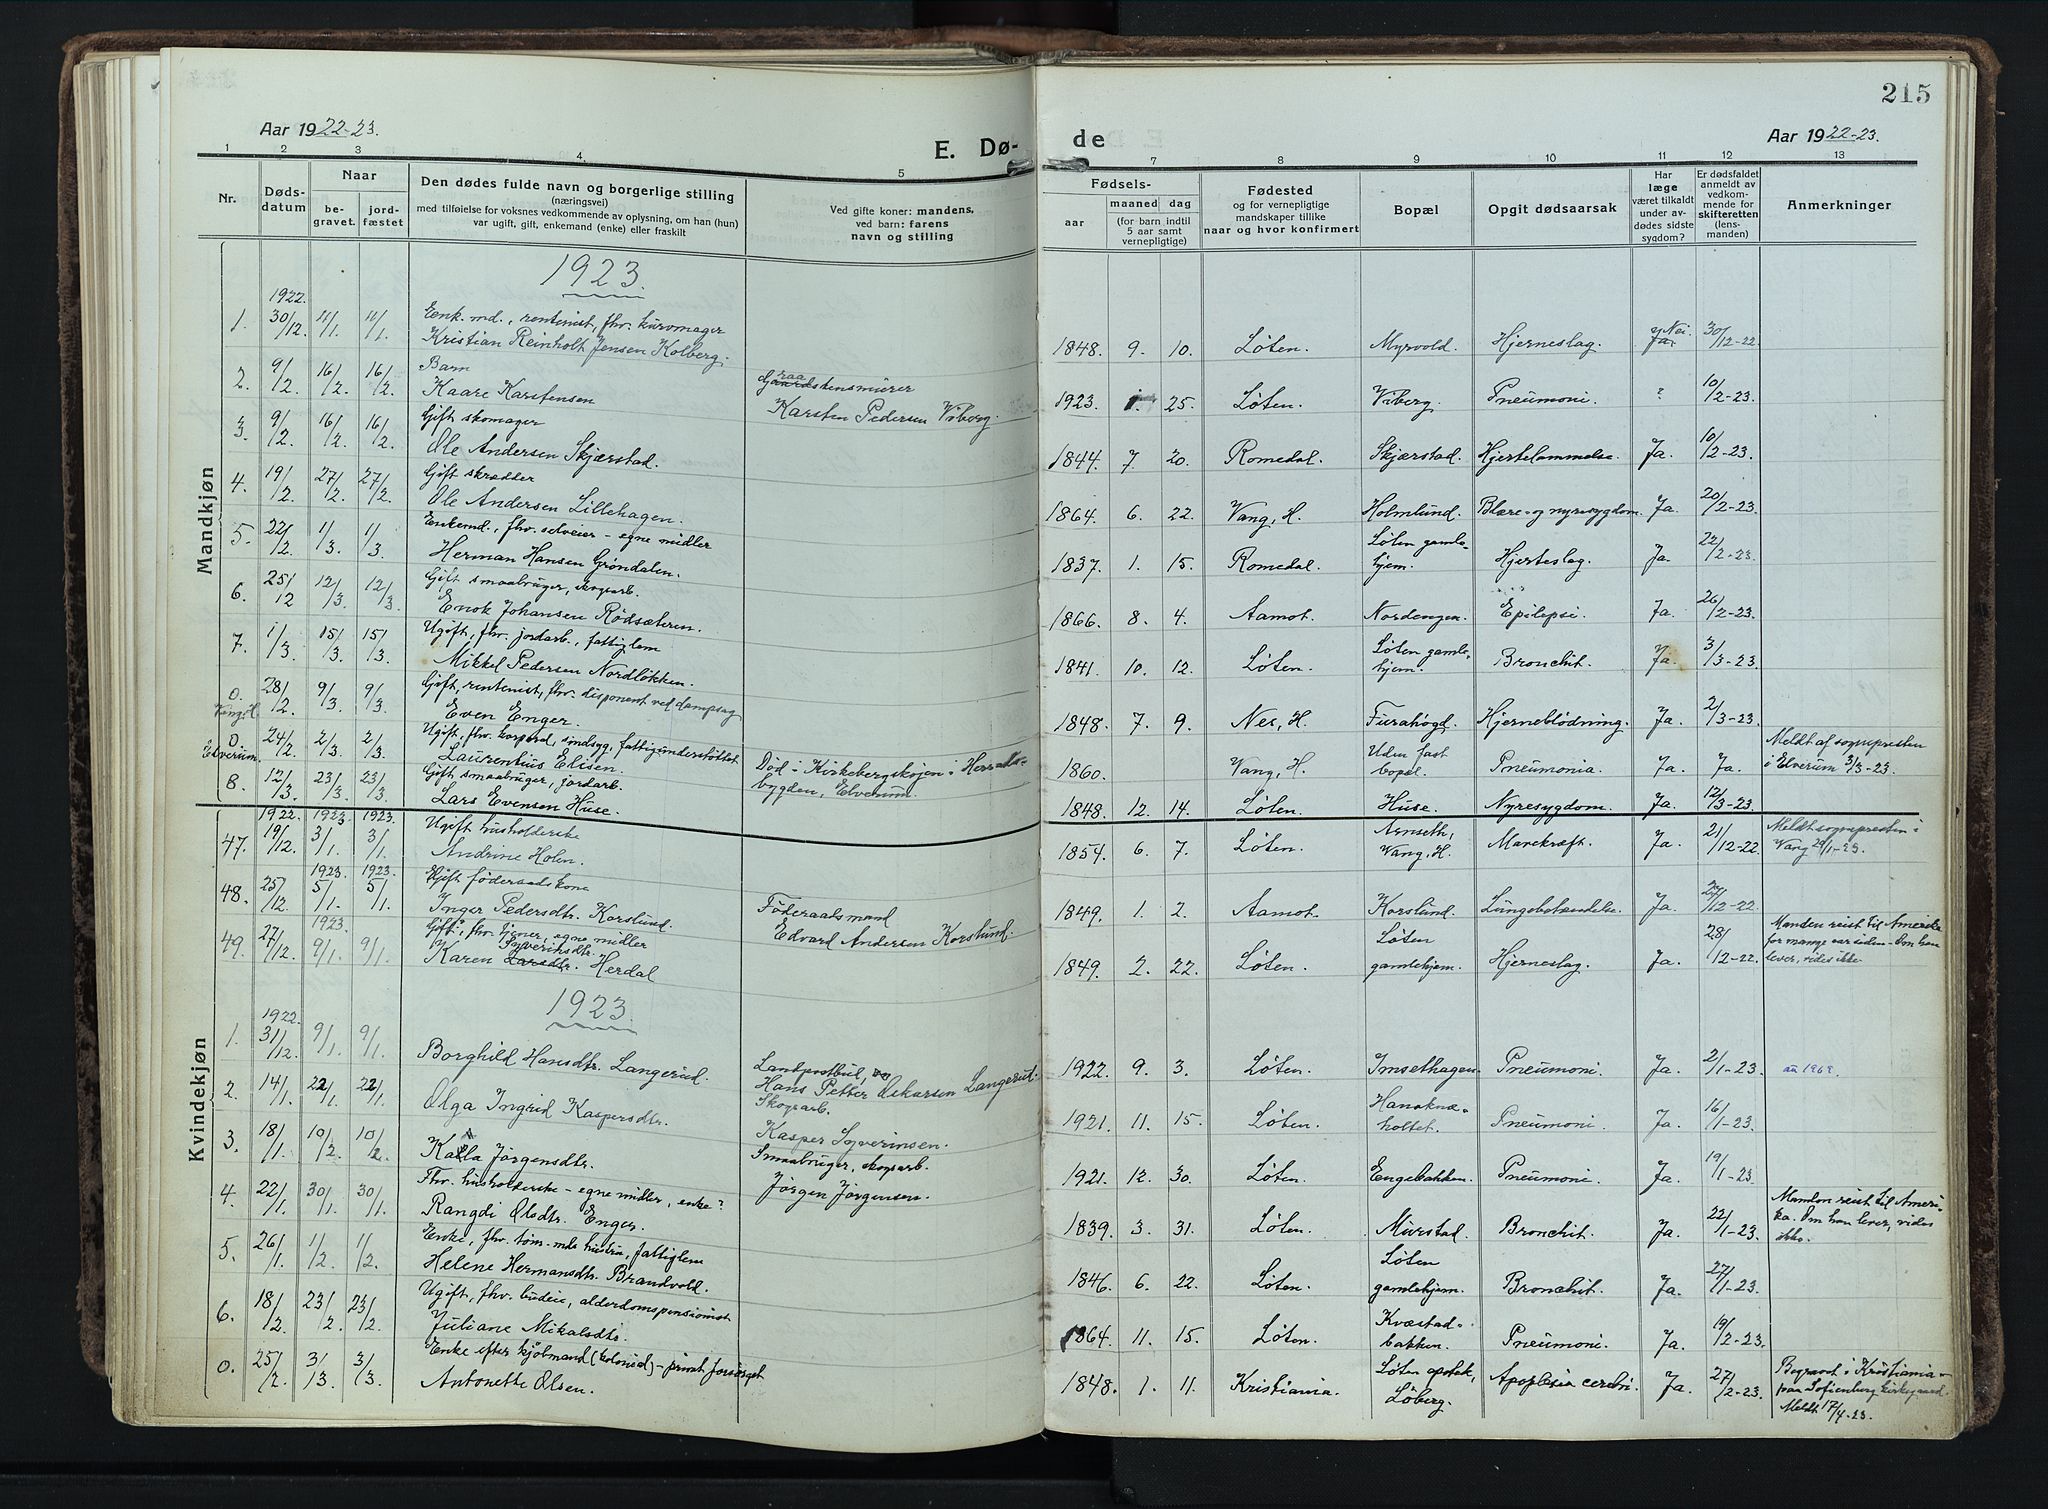 215
Aar 1922-23.
E. Dø-
de
Aar 1922-23.
1 2 3 4. 5 7 8 9 10 11 12 13
Nr.
Døds-
datum
Naar
be-
gravet.
jord-
fæstet
Den dødes fulde navn og borgerlige stilling
(næringsvei)
med tilføielse for voksnes vedkommende av oplysning, om han (hun)
var ugift, gift, enkemand (enke) eller fraskilt
Ved gifte koner: mandens,
ved barn: farens
navn og stilling
Fødsels-
aar
maaned dag
(for barn indtil
5 aar samt
vernepligtige)
Fødested
og for vernepligtige
mandskaper tillike
naar og hvor konfirmert
Bopæl
Opgit dødsaarsak
Har
læge
været tilkaldt
under av-
dødes sidste
sygdom?
Er dødsfaldet
anmeldt av
vedkom-
mende for
skifteretten
(lens-
manden)
Anmerkninger
Mandkjøn
1923.
1922.
1. 30/12. 11/1. 11/1. Enk.md., rentenist, fhv. kurvmager
Kristian Reinholt Jensen Kolberg.
1848. 9. 10. Løten. Myrvold. Hjerneslag. Nei. 30/12-22
2. 9/2. 16/2. 16/2. Barn
Kaare Karstensen
Graastensmurer
Karsten Pedersen Viberg.
1923. 1. 25. Løten. Viberg. Pneumoni. ? 10/2-23.
3. 9/2. 16/2. 16/2. Gift skomager
Ole Andersen Skjærstad.
1844. 7. 20. Romedal. Skjærstad. Hjertelammelse. Ja. 10/2-23.
4. 19/2. 27/2. 27/2. Gift skrædder
Ole Andersen Lillehagen.
1864. 6. 22. Vang, H. Holmlund. Blære- og nyresygdom. Ja. 20/2-23.
5. 22/2. 1/3. 1/3. Enkemd., fhv. selveier - egne midler
Herman Hansen Grøndalen.
1837. 1. 15. Romedal. Løten gamle-
hjem. Hjerteslag. Ja. 22/2-23.
6. 25/12 12/3. 12/3. Gift smaabruger, skogsarb.
Enok Johansen Rødsæteren.
1866. 8. 4. Aamot. Nordengen. Epilepsi. Ja. 26/2-23.
7. 1/3. 15/3. 15/3. Ugift, fhv. jordarb., fattiglem
Mikkel Pedersen Nordløkken.
1841. 10. 12. Løten. Løten gamle-
hjem. Bronchit. Ja. 3/3-23.
0. 28/2. 9/3. 9/3. Gift, rentenist, fhv. disponent ved dampsag
Vang, H.
Even Enger.
1848. 7. 9. Nes, H. Furahøgd. Hjerneblødning. Ja. 2/3-23.
0. 24/2. 2/3. 2/3. Ugift, fhv. korporal, sindsyg, fattigunderstøttet
Elverum.
Laurentius Elisen.
Død i Kirkebergskojen i Herrads-
bygden, Elverum.
1860. Vang, H. Uden fast
bopæl. Pneumonia. Ja. Ja.
Meldt af sognepresten
i Elverum 3/3-23.
8. 12/3. 23/3. 23/3. Gift smaabruger, jordarb.
Lars Evensen Huse.
1848. 12. 14. Løten. Huse. Nyresygdom. Ja. 12/3-23.
Kvindekjøn
1922. 1923. 1923.
47. 19/12. 3/1. 3/1. Ugift husholderske
Andrine Holen.
1854. 6. 7. Løten. Arnseth,
Vang, H. Mavekræft. Ja. 21/12-22.
Meldt sognepresten i
Vang 29/1-23.
1923. 1923.
48. 25/12. 5/1. 5/1. Gift føderaadskone
Inger Pedersdtr. Korslund.
Føderaadsmand
Edvard Andersen Korslund.
1849. 1. 2. Aamot. Korslund. Lungebetændelse. Ja. 12-22.
1923.
49. 27/12. 9/1. 9/1. Gift, fhv. tjener, egne midler
Syverinsdtr.
Karen Larsdtr. Herdal
1849. 2. 22. Løten. Løten
gamlehjem. Hjerneslag. Ja. 28/12-22.
Manden reist til Amerika
for mange aar siden - Om han
lever, vides ikke.
1923.
1922.
1. 31/12. 9/1. 9/1. Borghild Hansdtr. Langerud.
Landpostbud,
Hans Petter Oskarsen Langerud.
1922. 9. 3. Løten. Imsethagen. Pneumoni. Ja. 2/1-23.
2. 14/1. 22/1. 22/1. Olga Ingrid Kaspersdtr.
Skogsarb.
Kasper Syverinsen.
1921. 11. 15. Løten. Haneknæ-
holtet. Pneumoni. Ja. 16/1-23.
3. 18/1. 10/2. 10/2. Kalla Jørgensdtr.
Smaabruger, skogsarb.
Jørgen Jørgensen.
1921. 12. 30. Løten. Engebakken. Pneumoni. Ja. 19/1-23.
4. 22/1. 30/1. 30/1. Fhv. husholderske - egne midler, enke?
Rangdi Olsdtr. Enger.
1839. 3. 31. Løten. Murstad. Bronchit. Ja. 22/1-23.
Manden reist til Ameri-
ka. Om han lever, vides
ikke.
5. 26/1. 1/2. 1/2. Enke, fhv. tøm.mds hustru, fattiglem
Helene Hermansdtr. Brandvold.
1846. 6. 22. Løten. Løten
gamlehjem. Bronchit. Ja. 27/1-23.
6. 18/2. 23/2. 23/2. Ugift, fhv. budeie, alderdomspensionist
Juliane Mikalsdtr.
1864. 11. 15. Løten. Kvæstad-
bakken. Pneumoni. Ja. 19/2-23.
0. 25/2. 3/3. 3/3. Enke efter kjøbmand (kolonial) - privat forsørget
Antonette Olsen.
1848. 1. 11. Kristiania. Løten apotek,
Løberg. Apoplexia cerebri. Ja. 27/2-23.
Begravet i Kristiania -
paa Sofienberg kirkegaard.
Meldt 17/4-23.